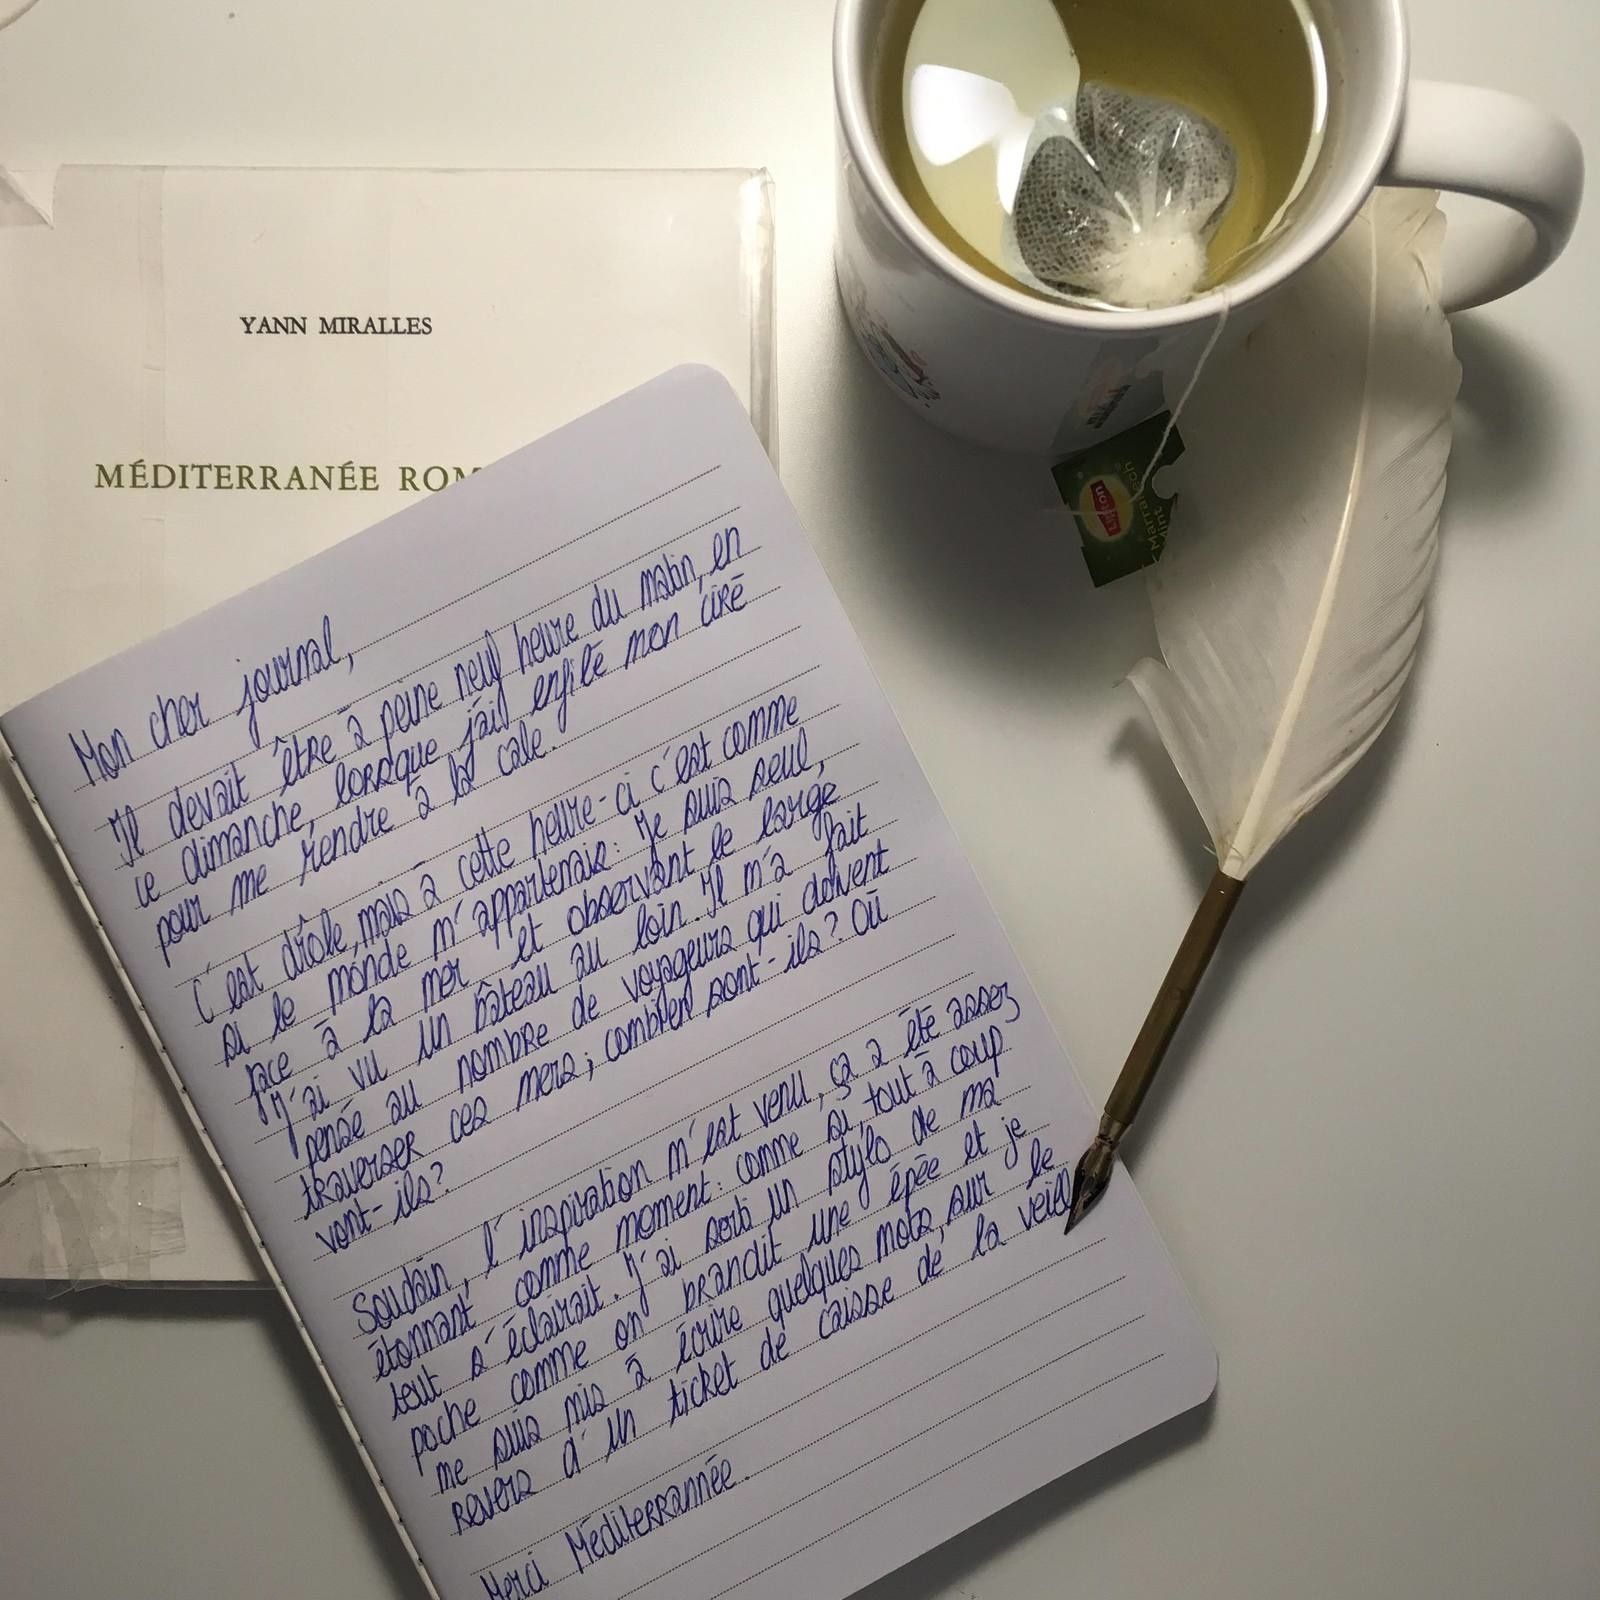 YANN MIRALLES
MÉDITERRANÉE ROM
Lipton
Marrakech
Mint
Mon cher journal,
Il devait être à peine neuf heure du matin, en
ce dimanche, lorsque j'ai enfilé mon ciré
pour me rendre à la cale.
C'est drôle, mais à cette heure-ci c'est comme
si le monde m'appartenais : Je suis seul,
face à la mer et observant le large
J'ai vu un bâteau au loin. Il m'a fait
pensé au nombre de voyageurs qui doivent
traverser ces mers ; combien sont-ils ? Où
vont-ils ?
Soudain, l'inspiration m'est venu, ça a été assez
étonnant comme moment : comme si, tout à coup
tout s'éclairait. J'ai sorti un stylo de ma
poche comme on brandit une épée et je
me suis mis à écrire quelques mots, sur le
revers d'un ticket de caisse de la veille
Merci Méditerrannée.